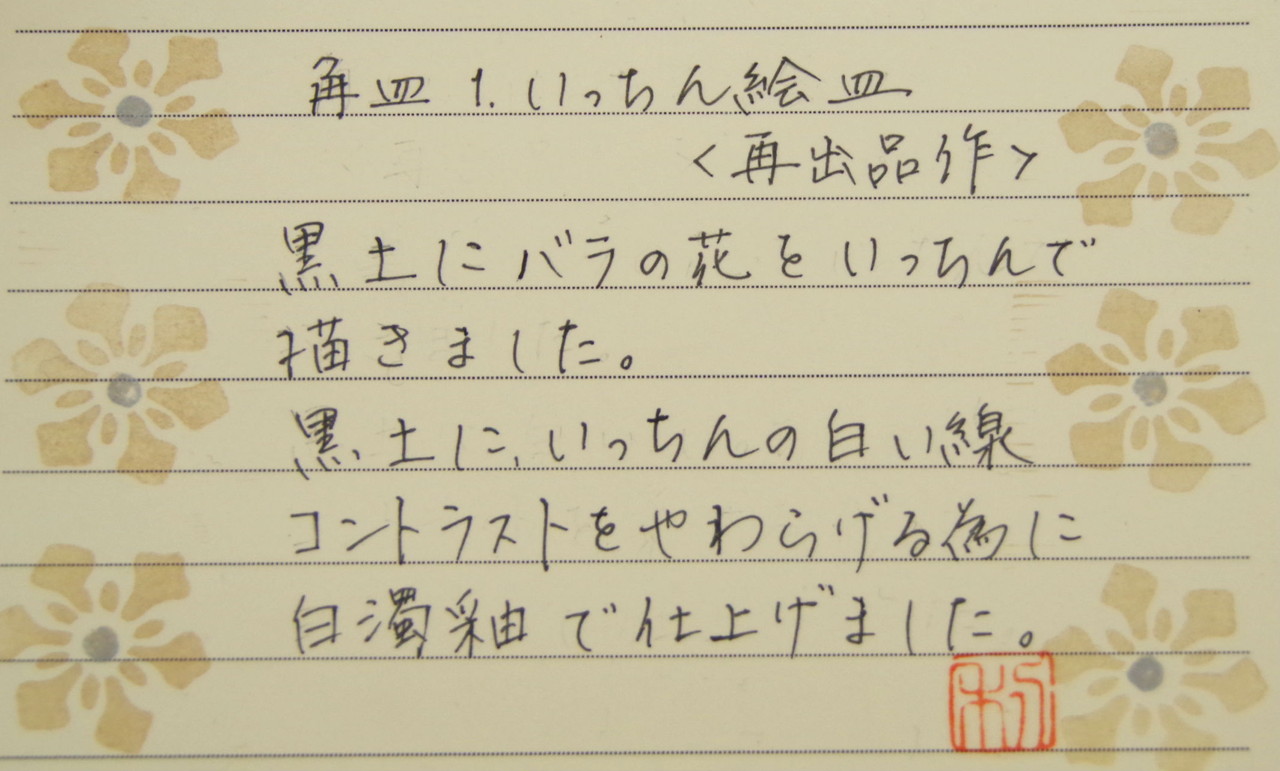 角皿 1. いっちん絵皿
<再出品作>
黒土にバラの花をいっちんで
描きました。
黒土に、いっちんの白い線
コントラストをやわらげる為に
白濁釉で仕上げました。